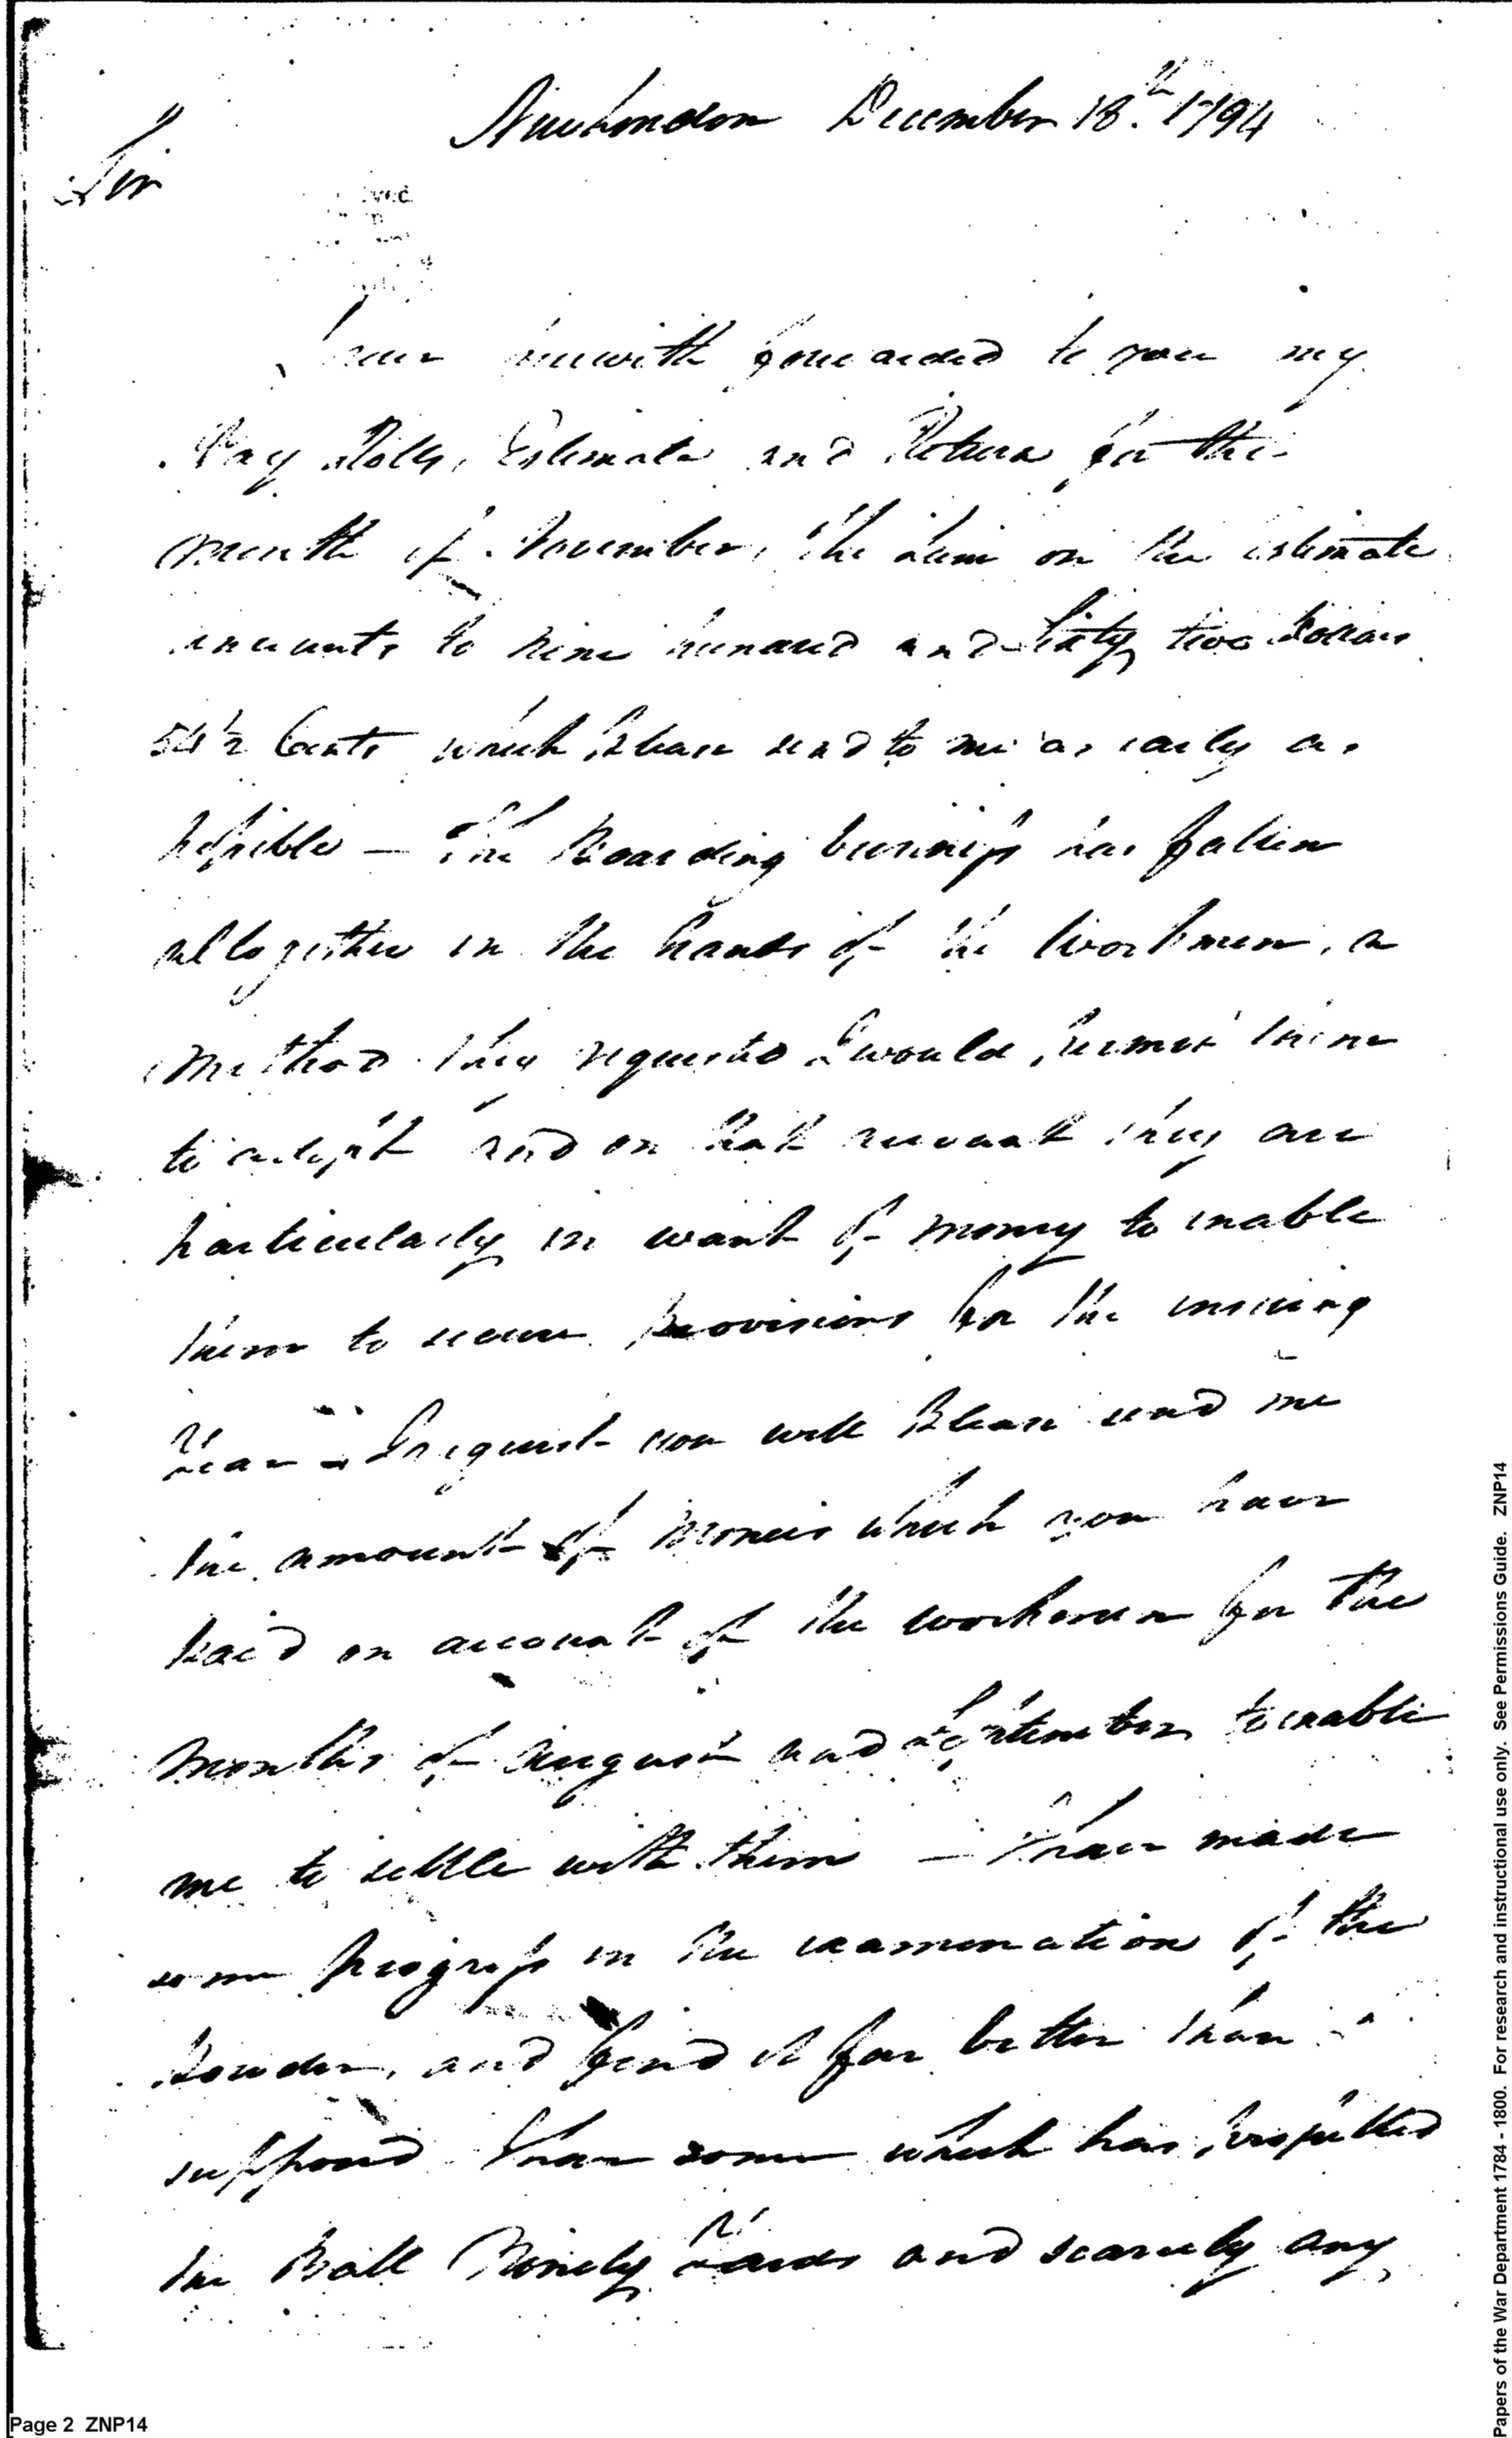 NewLondon December 18th. 1794
Sir
I have herewith forwarded to you my
Pay Rolls, Estimate and Return for the
month of November, the sum on the estimate
amounts to nine hundred and Sixty two Dollars
54½ Cents which Please send to me as early as
possible — The Boarding business has fallen
alltogether in the hands of the Workmen, a
method they requested I would permit them
to adopt and on that account they are
particularly in want of money to inable
them to secure Provisions for the insuing
Year — I request you will Please send me
the amount of Monies which you have
paid on account of the workmen for the
months of August and September to inable
me to settle with them — I have made
some progress in the examination of the
Powder, and find it far better than I
supposed I have some which has propelled
the Ball Ninety Yards and scarcely any
Page 2 ZNP14
Papers of the War Department 1784 - 1800. For research and instructional use only. See Permissions Guide. ZNP14